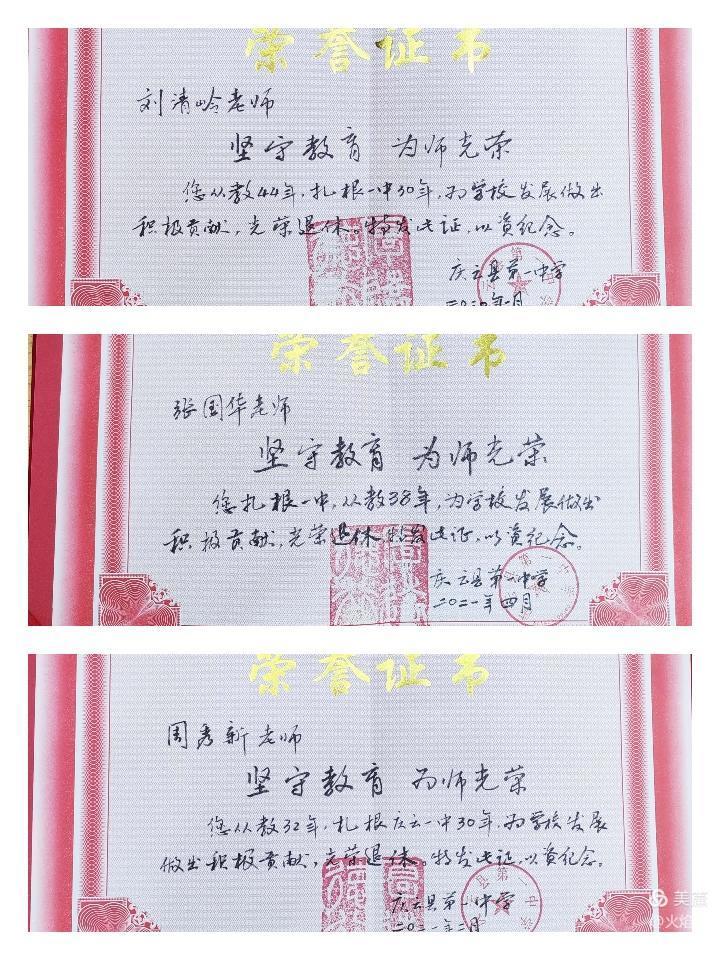 荣誉证书
刘清岭老师
坚守教育 为师光荣
您从教44年，扎根一中30年，为学校发展做出
积极贡献，光荣退休。特发此证，以资纪念。
庆云县第一中学
荣誉证书
张国华老师
坚守教育 为师光荣
您扎根一中，从教38年，为学校发展做出
积极贡献，光荣退休。特发此证，以资纪念。
庆云县第一中学
二〇二一年四月
荣誉证书
周秀新老师
坚守教育 为师光荣
您从教32年，扎根庆云一中30年，为学校发展
做出积极贡献，光荣退休。特发此证，以资纪念。
庆云县第一中学
二〇二一年二月
美篇
@火焰